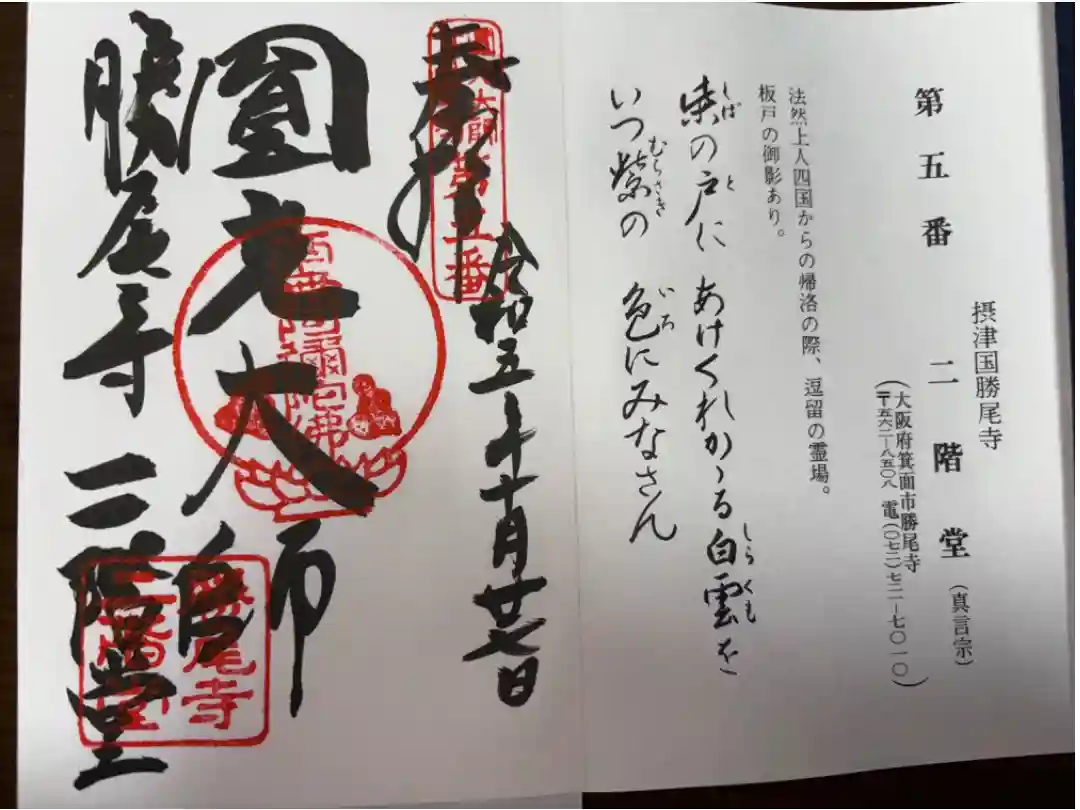 第五番
摂津国勝尾寺
二階堂(真言宗)
(大阪府箕面市勝尾寺
〒五六二ー八五〇八 電(〇七二)七二一ー七〇一〇)
法然上人四国からの帰洛の際、逗留の霊場。
板戸の御影あり。
柴の戸に あけくれかゝる白雲を
しば と しらくも
いつ紫の 色にみなさん
むらさき いろ
奉拝
令和五年十月廿七日
圓光大師
勝尾寺 二階堂
第五番
勝尾寺
二階堂